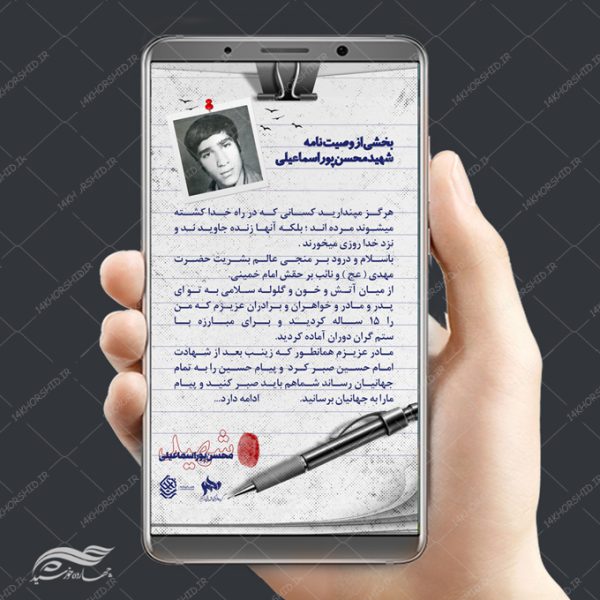 بخشی از وصیت نامه
شهید محسن پور اسماعیلی
هرگز مپندارید کسانی که در راه خدا کشته
میشوند مرده اند ؛ بلکه آنها زنده جاوید ند و
نزد خدا روزی میخورند .
باسلام و درود بر منجی عالم بشریت حضرت
مهدی ( عج ) و نائب بر حقش امام خمینی.
از میان آتش و خون و گلوله سلامی به تو ای
پدر و مادر و خواهران و برادران عزیزم که من
را ۱۵ ساله کردید و برای مبارزه با
ستم گران دوران آماده کردید.
مادر عزیزم همانطور که زینب بعد از شهادت
امام حسین صبر کرد و پیام حسین را به تمام
جهانیان رساند شماهم باید صبر کنید و پیام
مارا به جهانیان برسانید. ادامه دارد...
شهید
محسن پور اسماعیلی
چهارده خورشید
14KHORSHID.IR